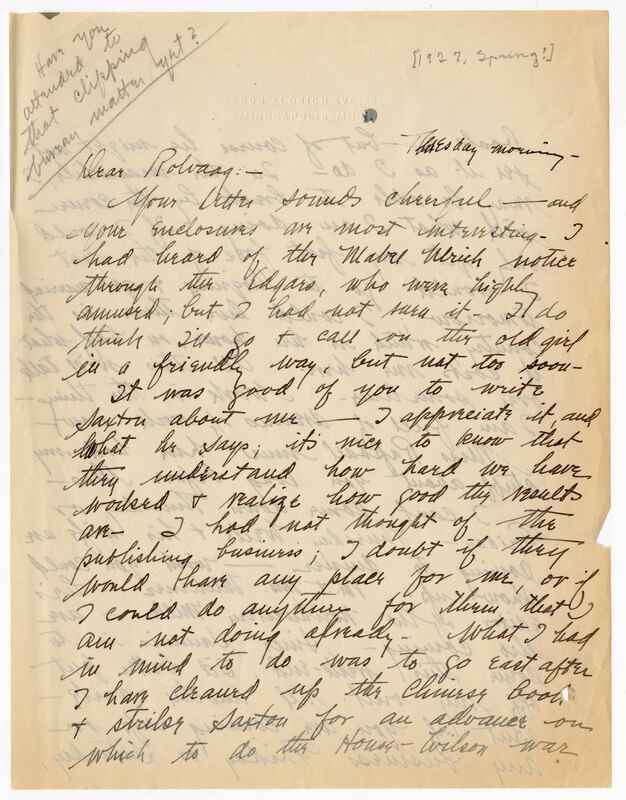 Have you
attended to
that clipping
bureau matter yet?
[1927, Spring?]
2203 ALDRICH AVE.
MINNEAPOLIS, MINN.
Tuesday morning -
Dear Rolvaag: -
Your letter sounds cheerful — and
your enclosures are most interesting - I
had heard of the Mabel Ulrich notice
through the Edgars, who were highly
amused; but I had not seen it - I do
think I'll go & call on the old girl
in a friendly way, but not too soon -
It was good of you to write
Saxton about me — I appreciate it, and
what he says; it's nice to know that
they understand how hard we have
worked & realize how good the results
are - I had not thought of the
publishing business; I doubt if they
would have any place for me, or if
I could do anything for them that I
am not doing already - What I had
in mind to do was to go east after
I have cleaned up the Chinese book
& strike Saxton for an advance on
which to do the House - Wilson war